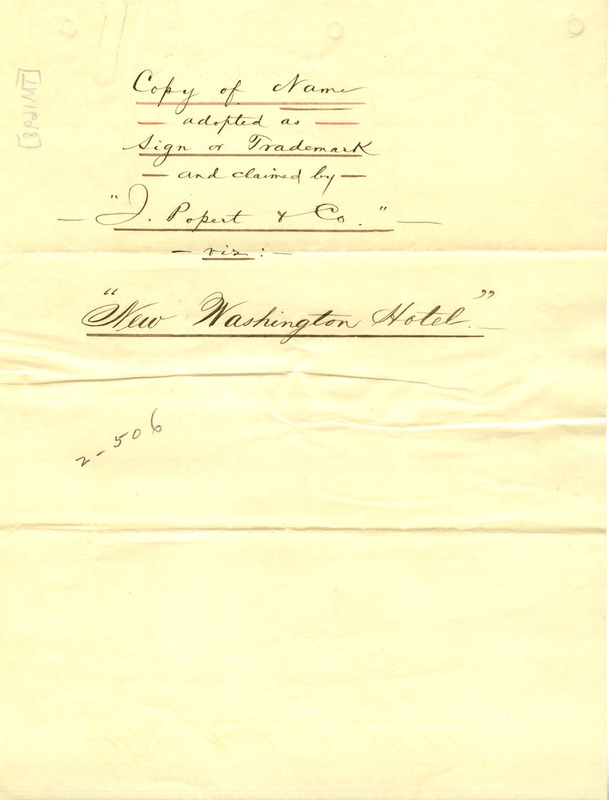 Copy of Name
— adopted as —
Sign or Trademark
— and claimed by —
— "J. Popert & Co." —
— viz: —
"New Washington Hotel." —
2-506